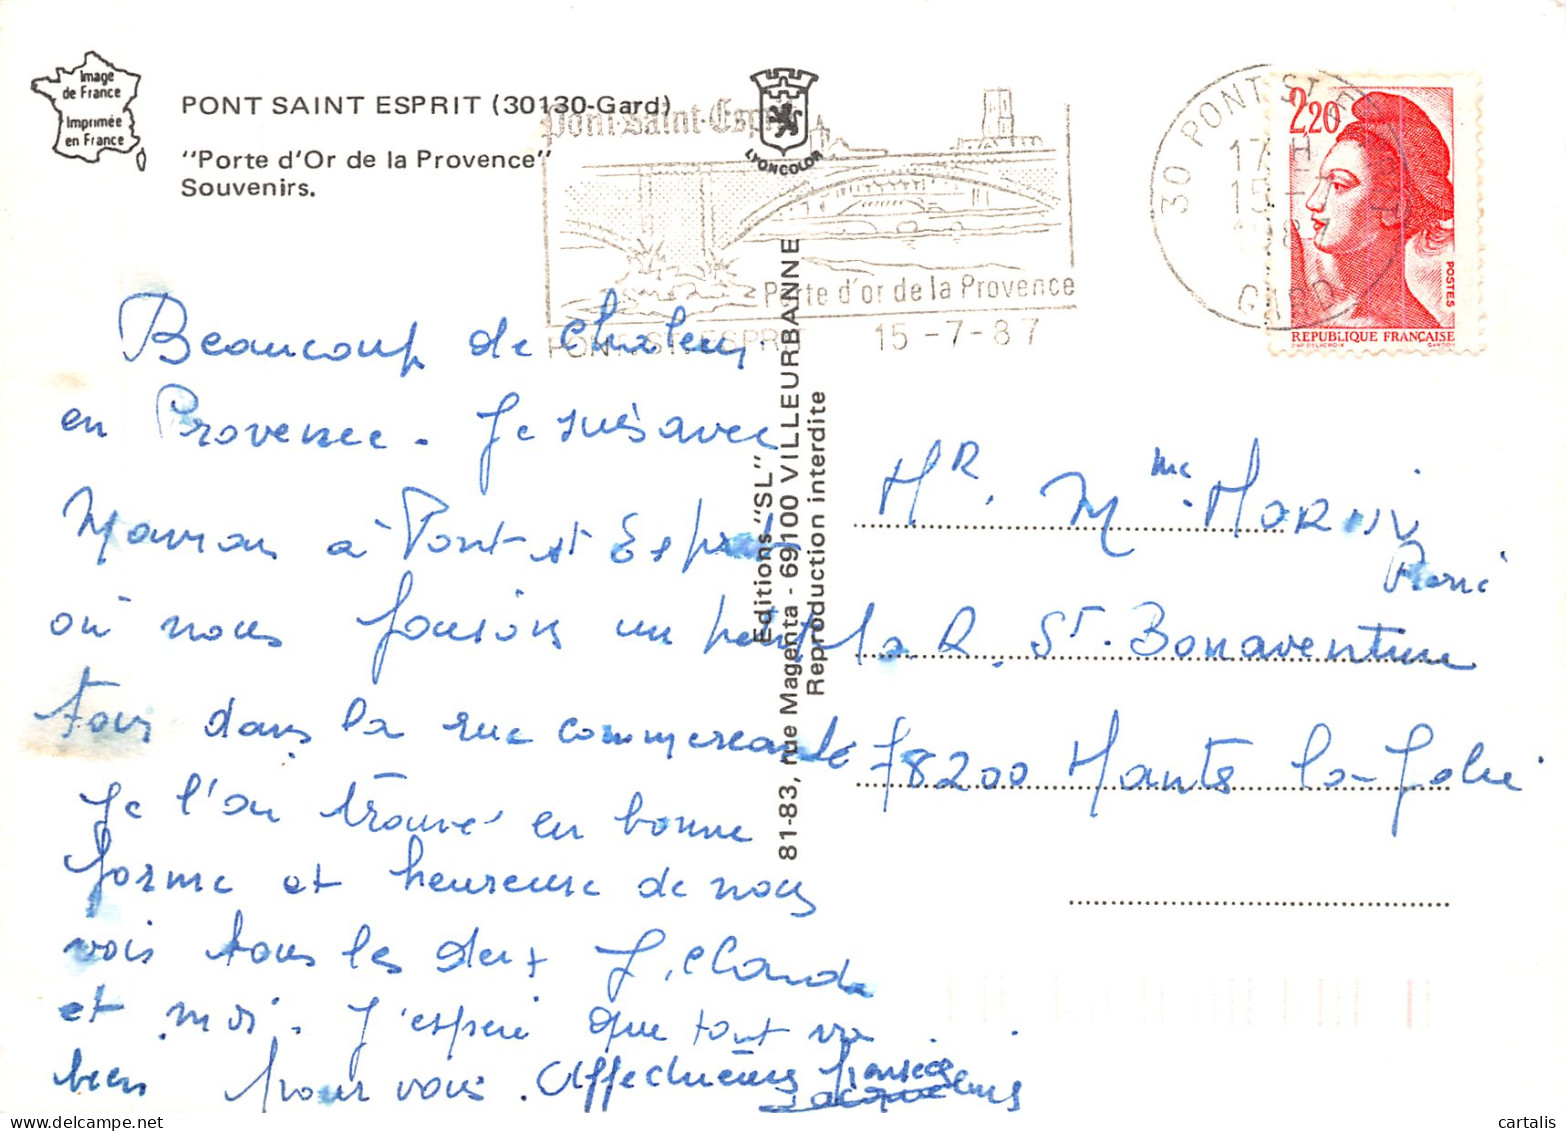 Image
de France
Imprimée
en France
PONT SAINT ESPRIT (30130-Gard)
"Porte d'Or de la Provence"
Souvenirs.
Pont-Saint-Esprit
LYONCOLOR
Porte d'or de la Provence
PONT-ST-ESPRIT 15-7-87
30 PONT ST E
17 H
15
GARD
2,20
POSTES
REPUBLIQUE FRANÇAISE
Editions "SL"
81-83, rue Magenta - 69100 VILLEURBANNE
Reproduction interdite
Beaucoup de chaleur
en Provence. Je suis avec
à Pont-st Esprit
où nous faisons un petit
tour dans la rue commerçante
Je l'ai trouvé en bonne
forme et heureuse de nous
voir tous les deux J. Claude
et moi. J'espère que tout va
bien pour vous. Affectueuses
Mr. Mme. MORIN
René
R. St. Bonaventure
78200 Mants la-Jolie
cartalis